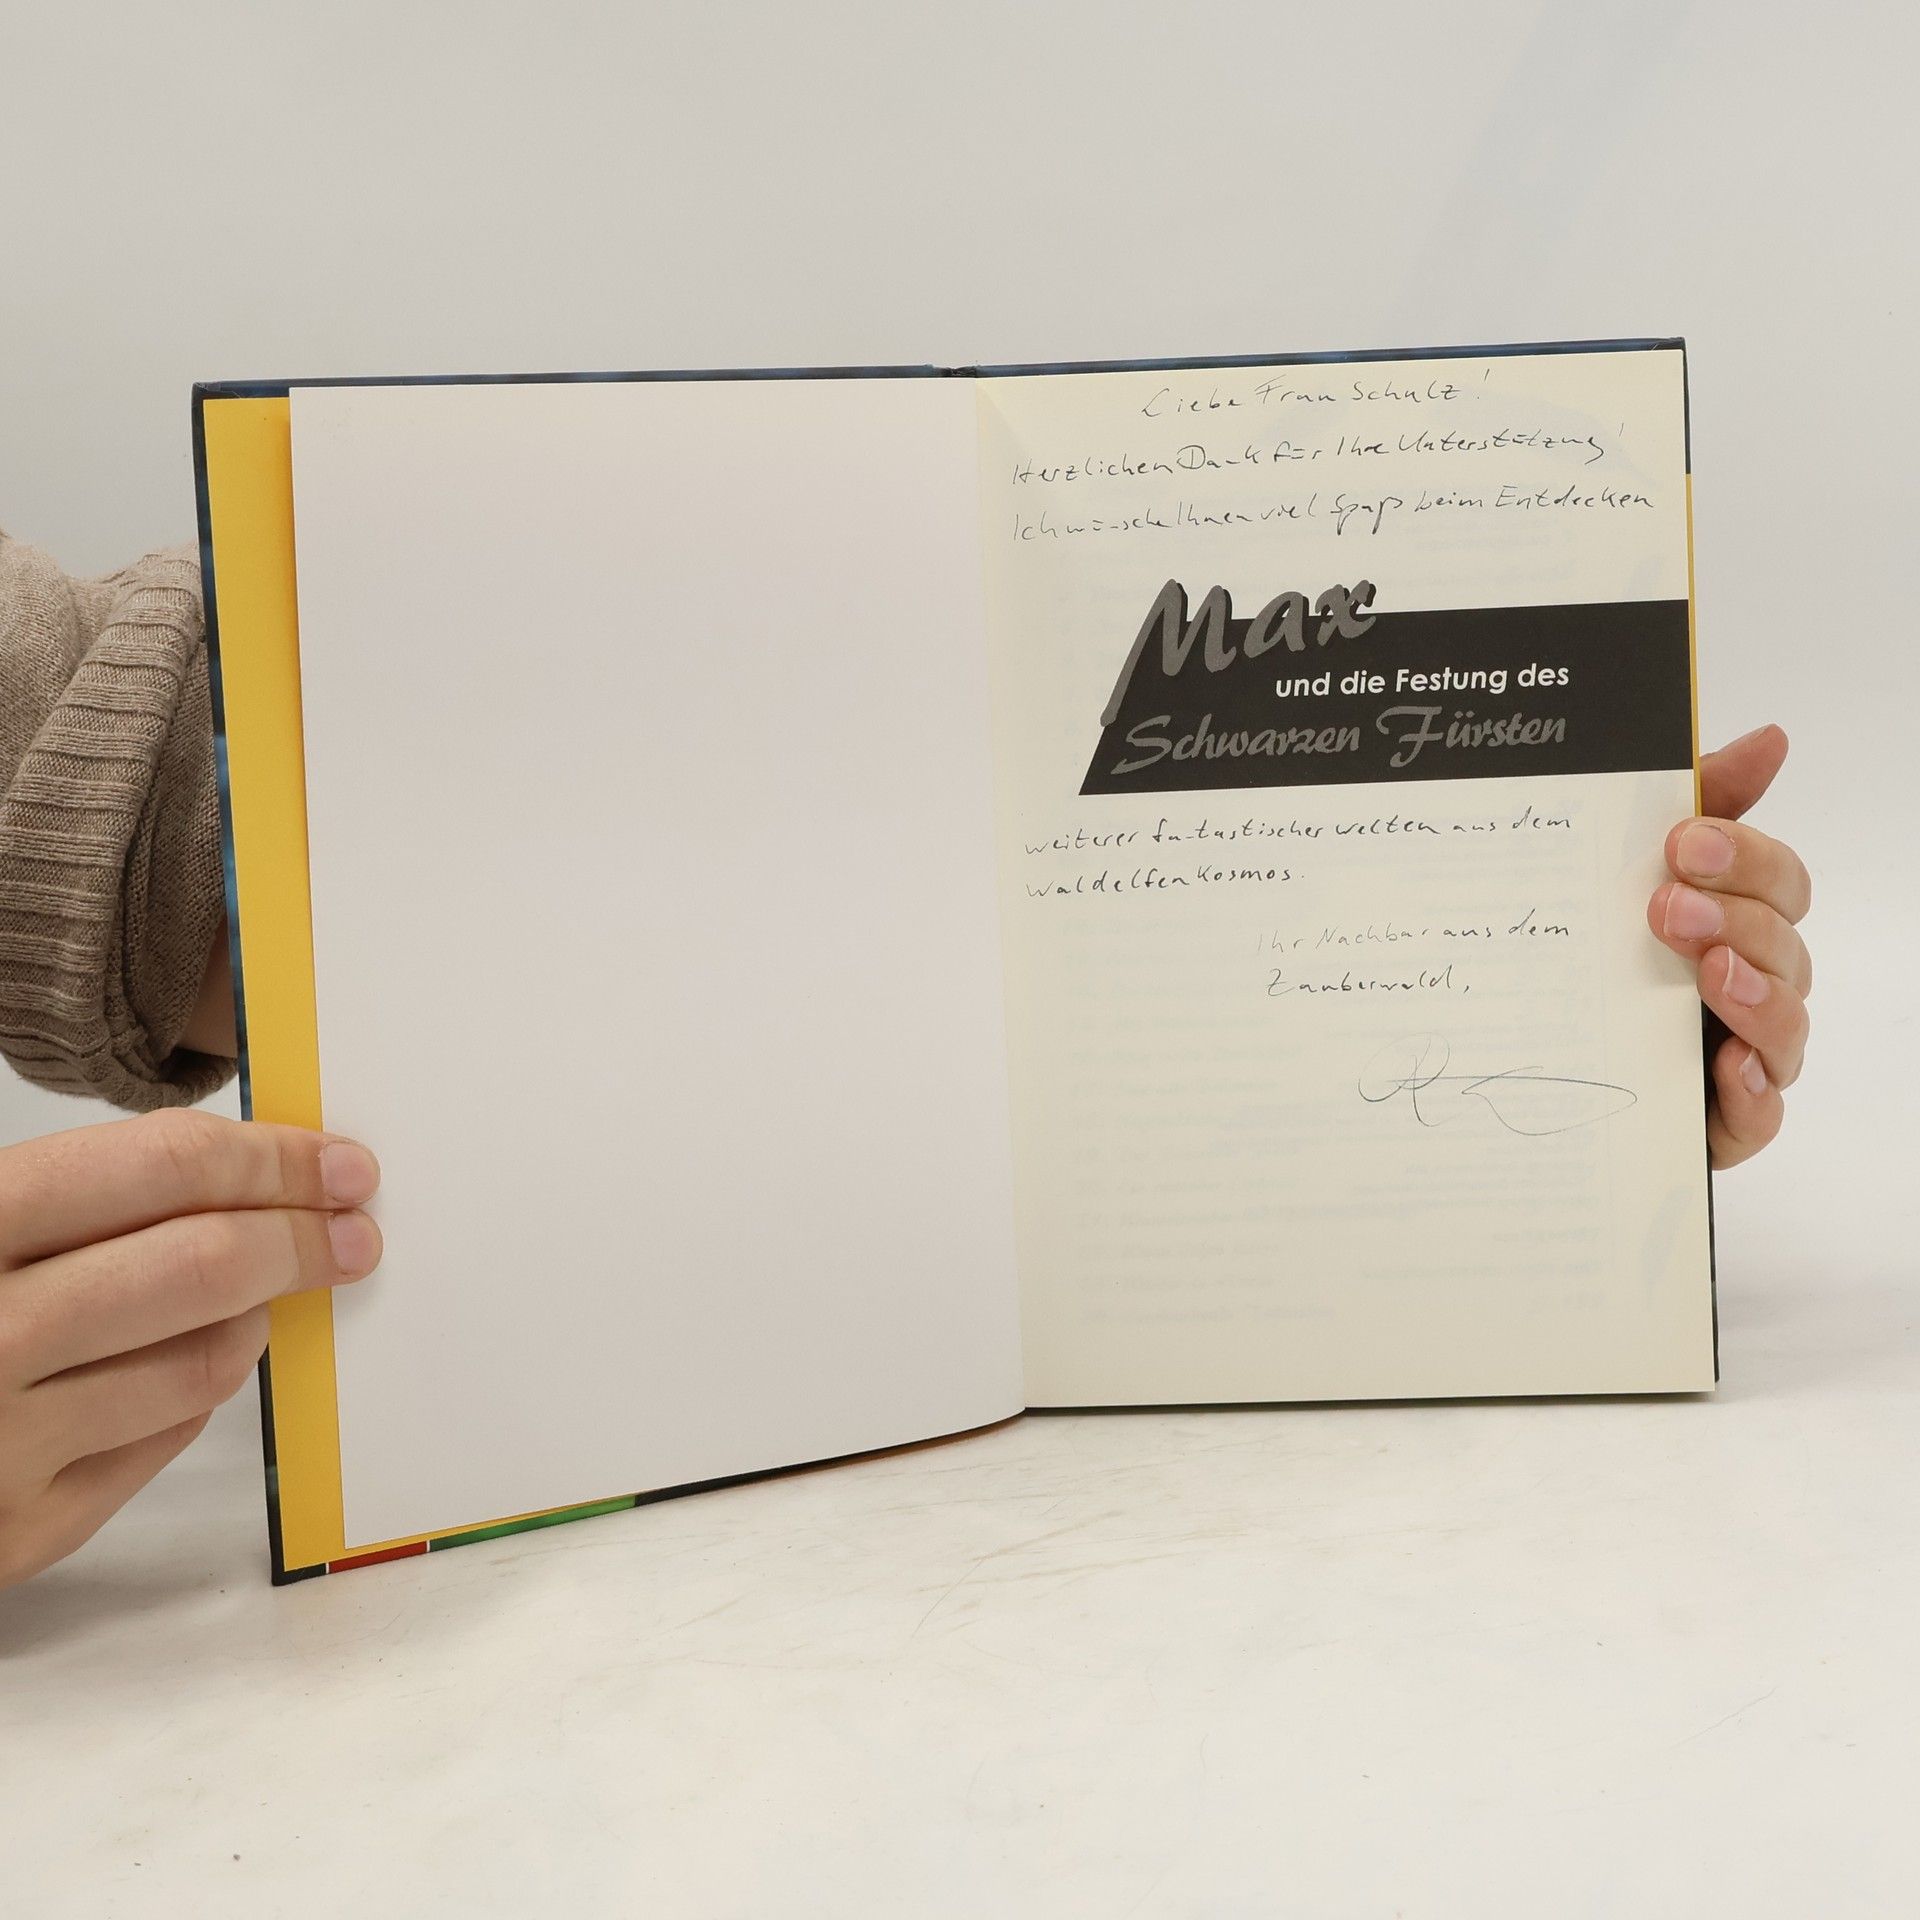 Liebe Frau Schulz!
Herzlichen Dank für Ihre Unterstützung!
Ich wünsche Ihnen viel Spaß beim Entdecken
Max
und die Festung des
Schwarzen Fürsten
weiterer fantastischer Welten aus dem
Waldelfen Kosmos.
Ihr Nachbar aus dem
Zauberwald,